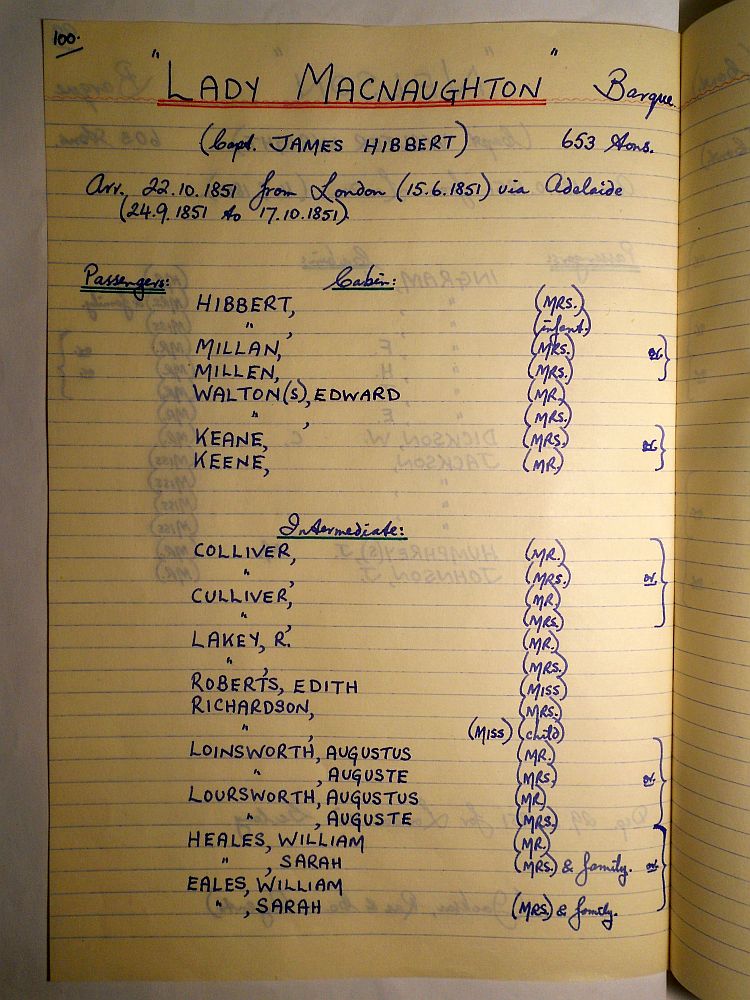 100.
"LADY MACNAUGHTON" Barque.
(Capt. JAMES HIBBERT) 653 tons.
Arr. 22.10.1851 from London (15.6.1851) via Adelaide
(24.9.1851 to 17.10.1851).
Passengers: Cabin:
HIBBERT, (MRS.)
" , (infant.)
MILLAN, (MRS.) or
MILLEN, (MRS.)
WALTON(S), EDWARD (MR.)
" , (MRS.)
KEANE, (MRS.) or
KEENE, (MR.)
Intermediate:
COLLIVER, (MR.)
" , (MRS.) or
CULLIVER, (MR.)
" , (MRS.)
LAKEY, R. (MR.)
" , (MRS.)
ROBERTS, EDITH (MISS)
RICHARDSON, (MRS.)
" , (MISS) (child)
LOINSWORTH, AUGUSTUS (MR.)
" , AUGUSTE (MRS.) or
LOURSWORTH, AUGUSTUS (MR.)
" , AUGUSTE (MRS.)
HEALES, WILLIAM (MR.)
" , SARAH (MRS.) & family. or
EALES, WILLIAM
" , SARAH (MRS) & family.